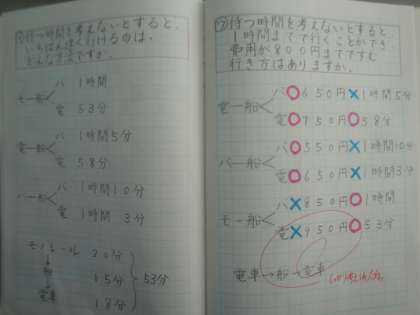 待つ時間を考えないとすると、
いちばんはやく行けるのは、
どんな方法ですか。
モー船
バ 1時間
電 53分
電ー船
バ 1時間5分
電 58分
バー船
バ 1時間10分
電 1時間 3分
モノレール 20分
船 15分
電車 18分
53分
②待つ時間を考えないとすると、
1時間までで行くことができ
費用が800円までですむ
行き方はありますか。
電ー船
バ○650円×1時間5分
電○750円○58分
バー船
バ○550円×1時間10分
電○650円×1時間3分
モー船
バ×850円○1時間
電×950円○53分
電車→船→電車